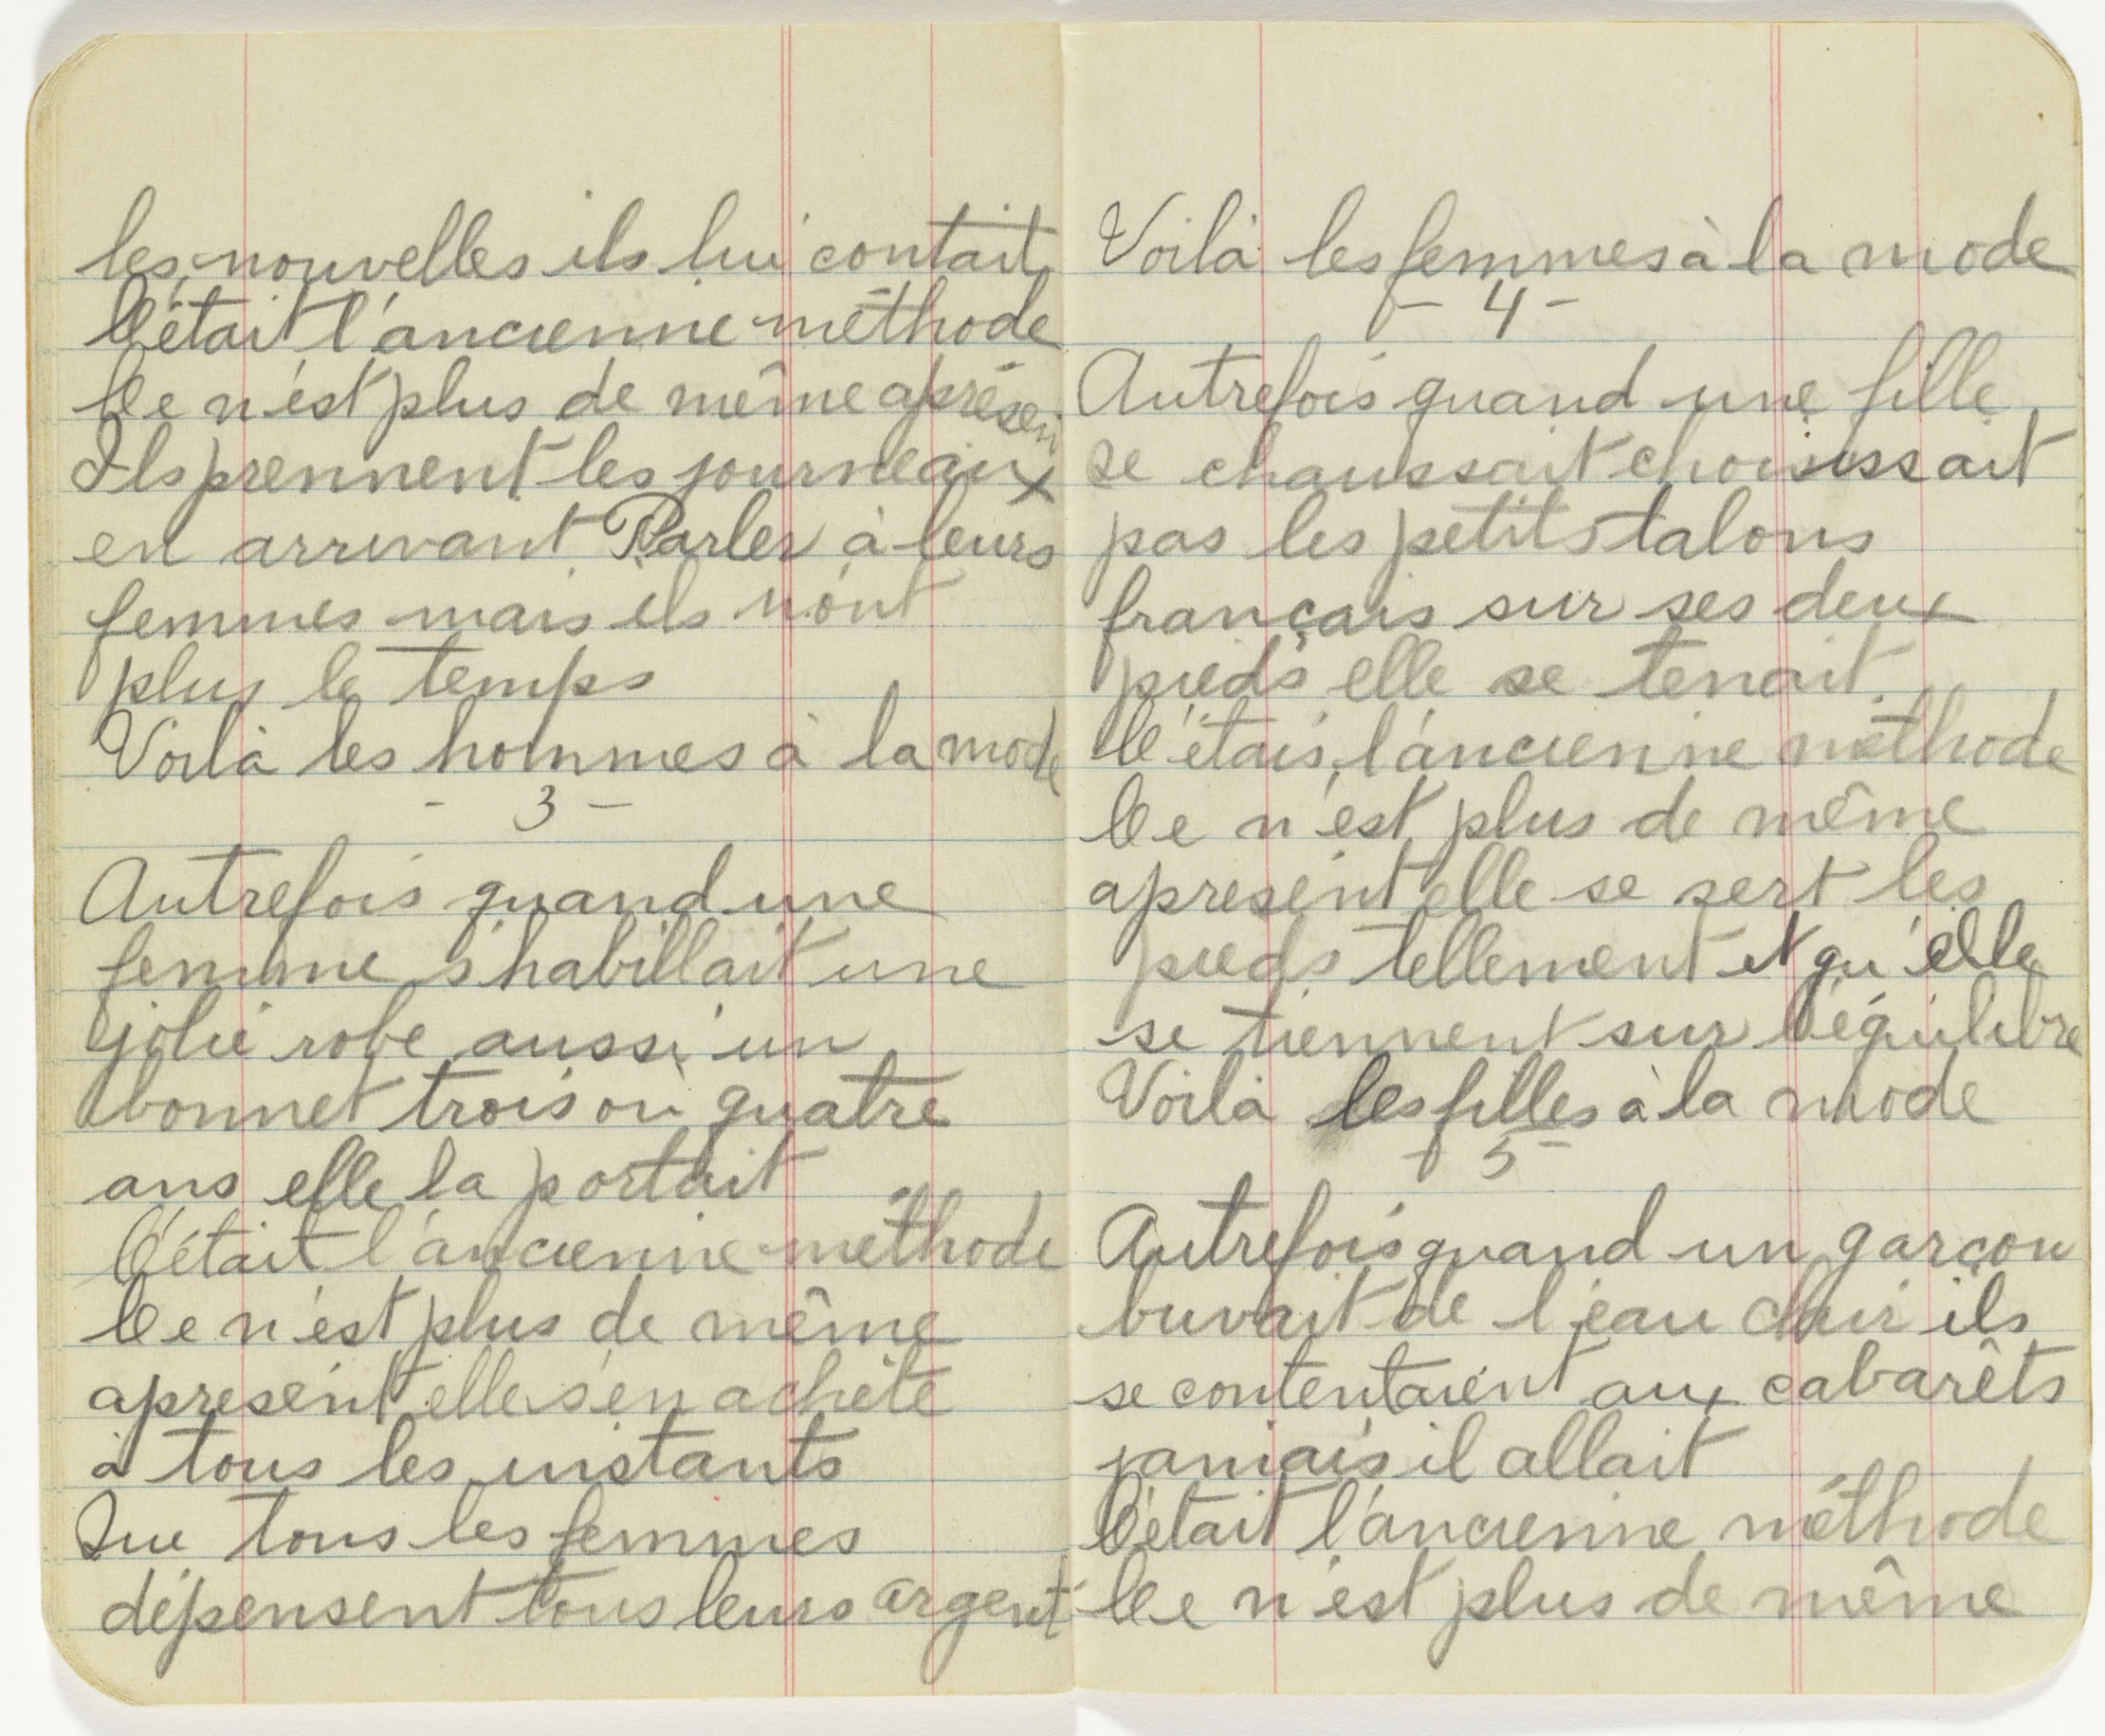 les nouvelles ils lui contait
C'était l'ancienne méthode
Ce n'est plus de même aprésen
Ils prennent les journeaux
en arrivant Parler à leurs
femmes mais ils n'ont
plus le temps
Voilà les hommes à la mode
- 3 -
Autrefois quand une
femme s'habillait une
jolie robe aussi un
bonnet trois ou quatre
ans elle la portait
C'était l'ancienne méthode
Ce n'est plus de même
apresent elle s'en achète
à tous les instants
Que tous les femmes
dépensent tous leurs argent
Voilà les femmes à la mode
- 4 -
Autrefois quand une fille
se chaussait choisissait
pas les petits talons
français sur ses deux
pieds elle se tenait.
C'étais l'ancienne méthode
Ce n'est plus de même
apresent elle se sert les
pieds tellement et qu'elle
se tiennent sur l'équilibre
Voilà les filles à la mode
- 5 -
Autrefois quand un garçon
buvait de l'eau clair ils
se contentaient aux cabarêts
jamais il allait
C'était l'ancienne méthode
Ce n'est plus de même